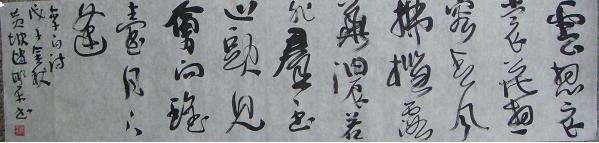 雲想衣
裳花想
容春風
拂檻露
華濃若
非羣玉
山頭見
會向瑤
臺月下
逢
李白詩
戊子金秋
黄坡